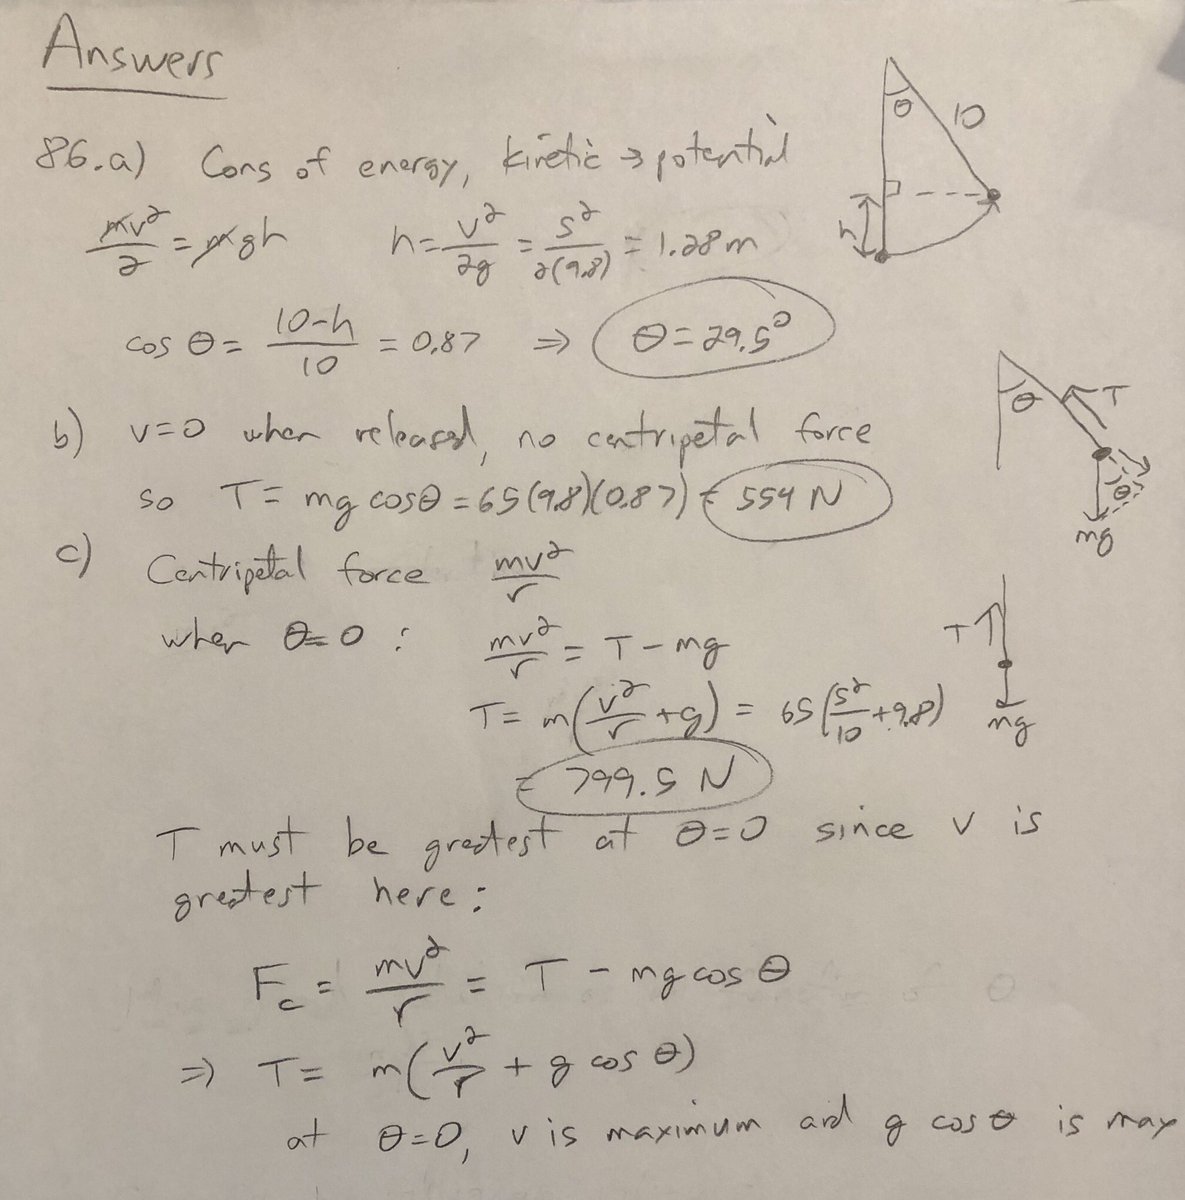 Answers
86.a) Cons of energy, kinetic → potential
mv²/2 = mgh   h = v²/2g = 5²/2(9.8) = 1.28 m
cos θ = 10-h/10 = 0.87 ⇒ θ = 29.5°
θ 10
h
b) v=0 when released, no centripetal force
so T = mg cosθ = 65(9.8)(0.87) = 554 N
θ T
θ
mg
c) Centripetal force mv²/r
when θ=0 : mv²/r = T - mg
T = m(v²/r + g) = 65(5²/10 + 9.8)
= 799.5 N
T
mg
T must be greatest at θ=0 since v is
greatest here:
Fc = mv²/r = T - mg cos θ
⇒ T = m(v²/r + g cos θ)
at θ=0, v is maximum and g cos θ is max